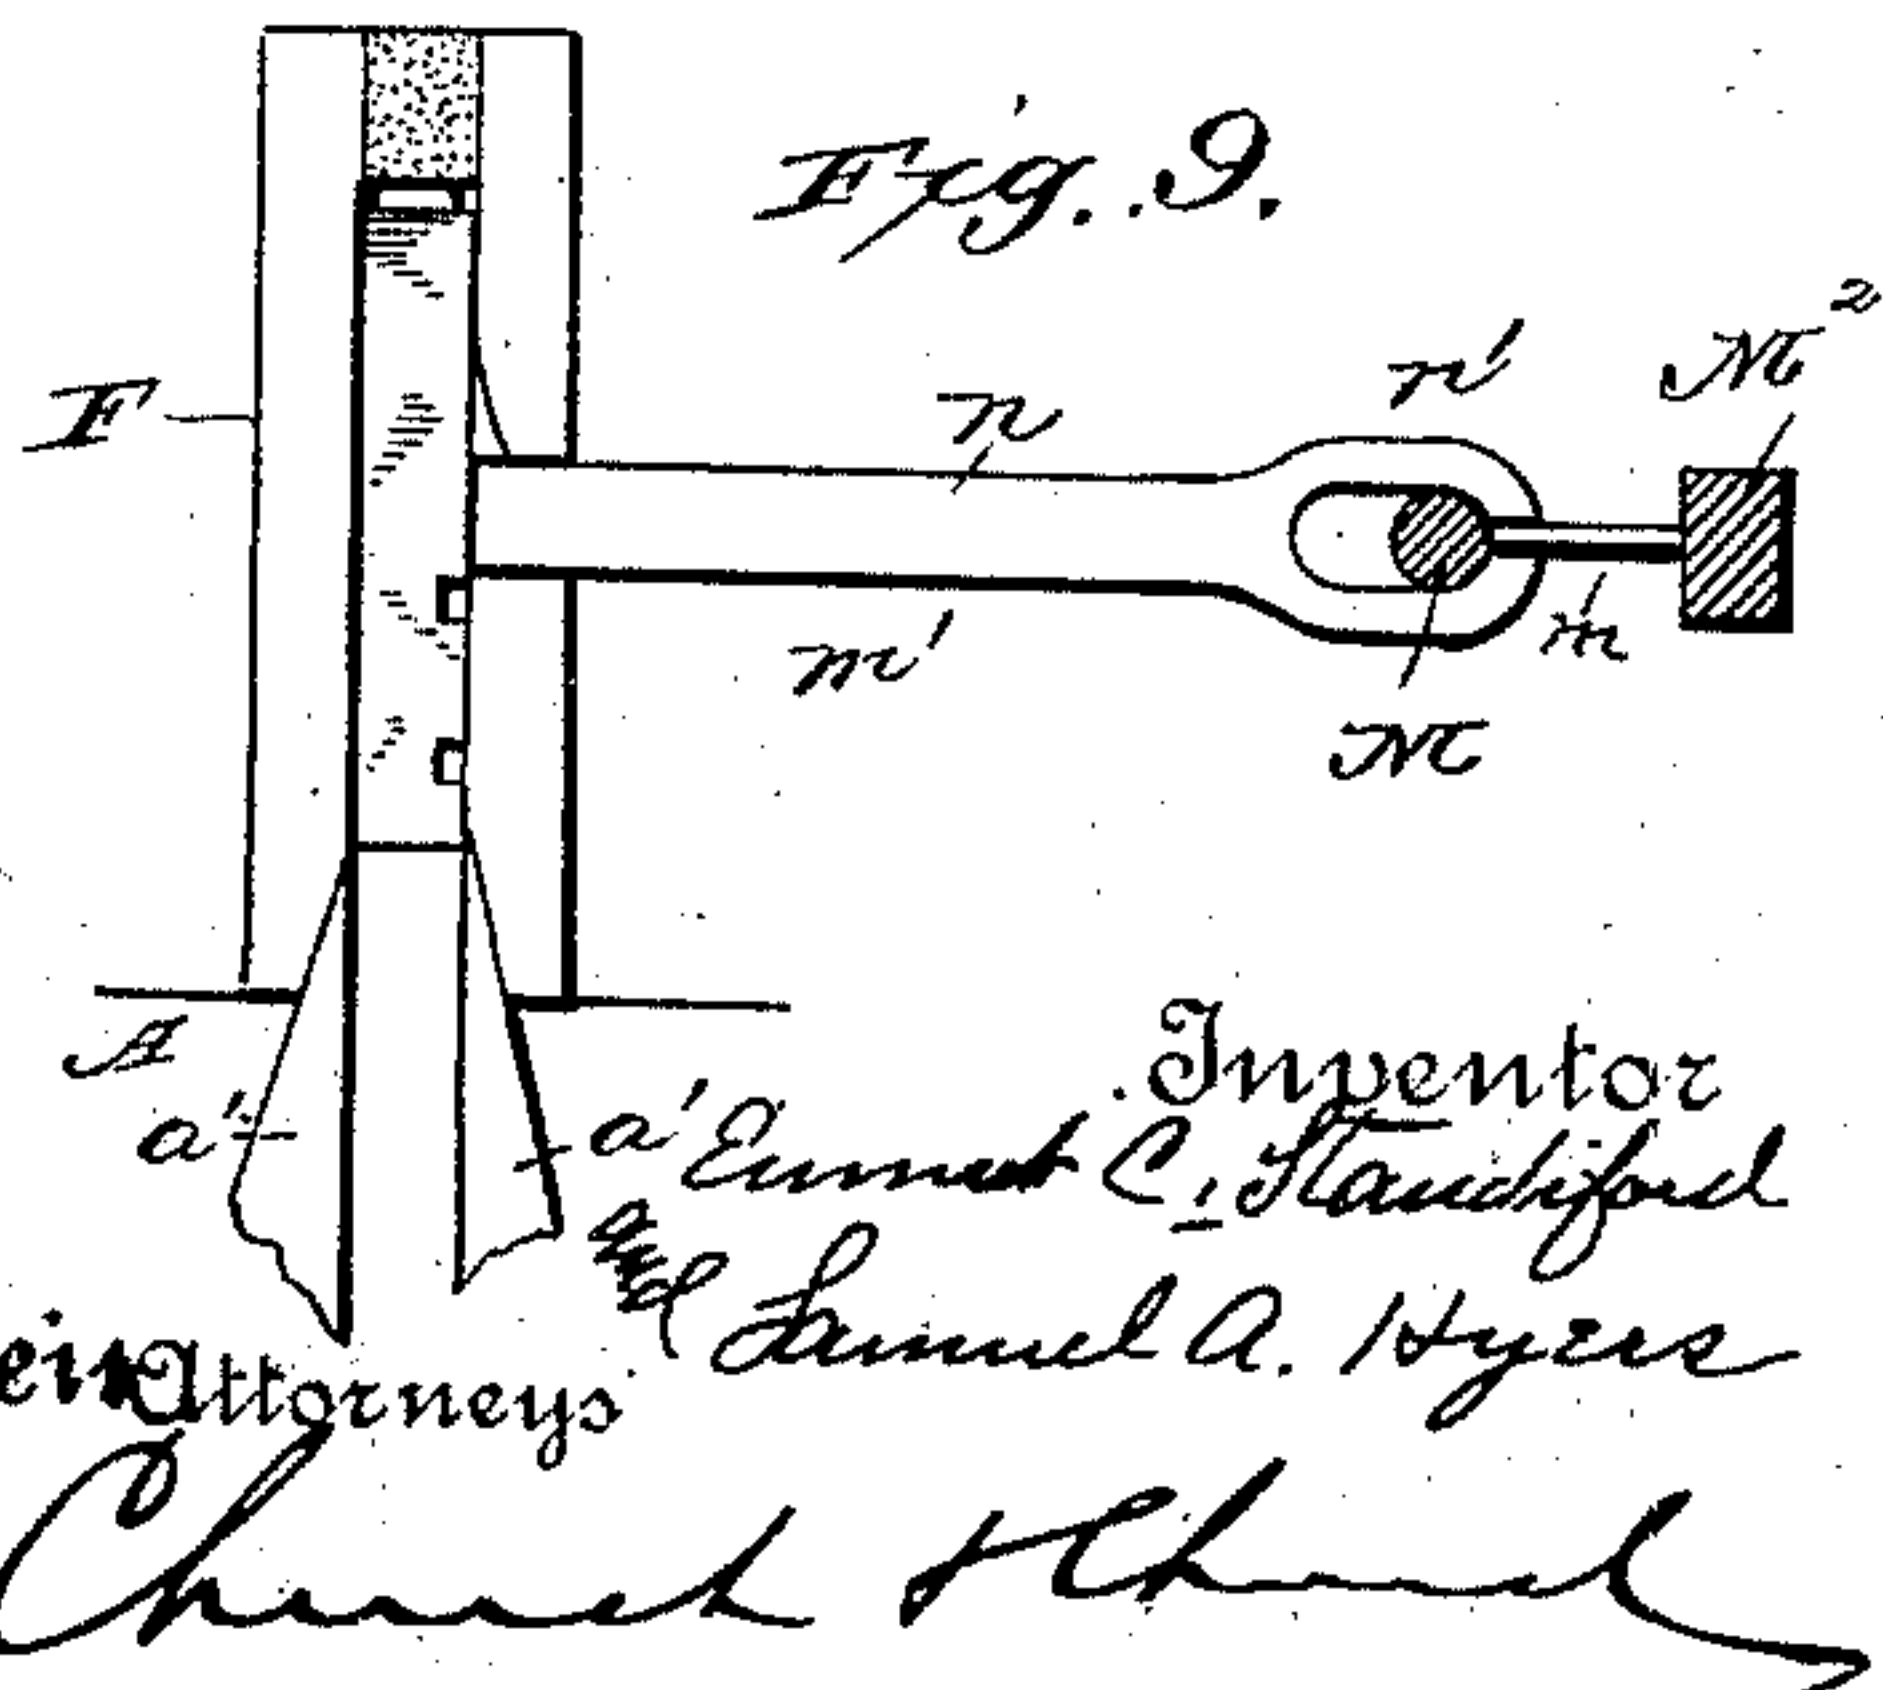 Fig. 9.
F
n
n'
M²
m'
m
M
A
a'
a'
Inventor
Emmet C. Standiford
and
Samuel A. Hyers
Attorneys
Church & Church